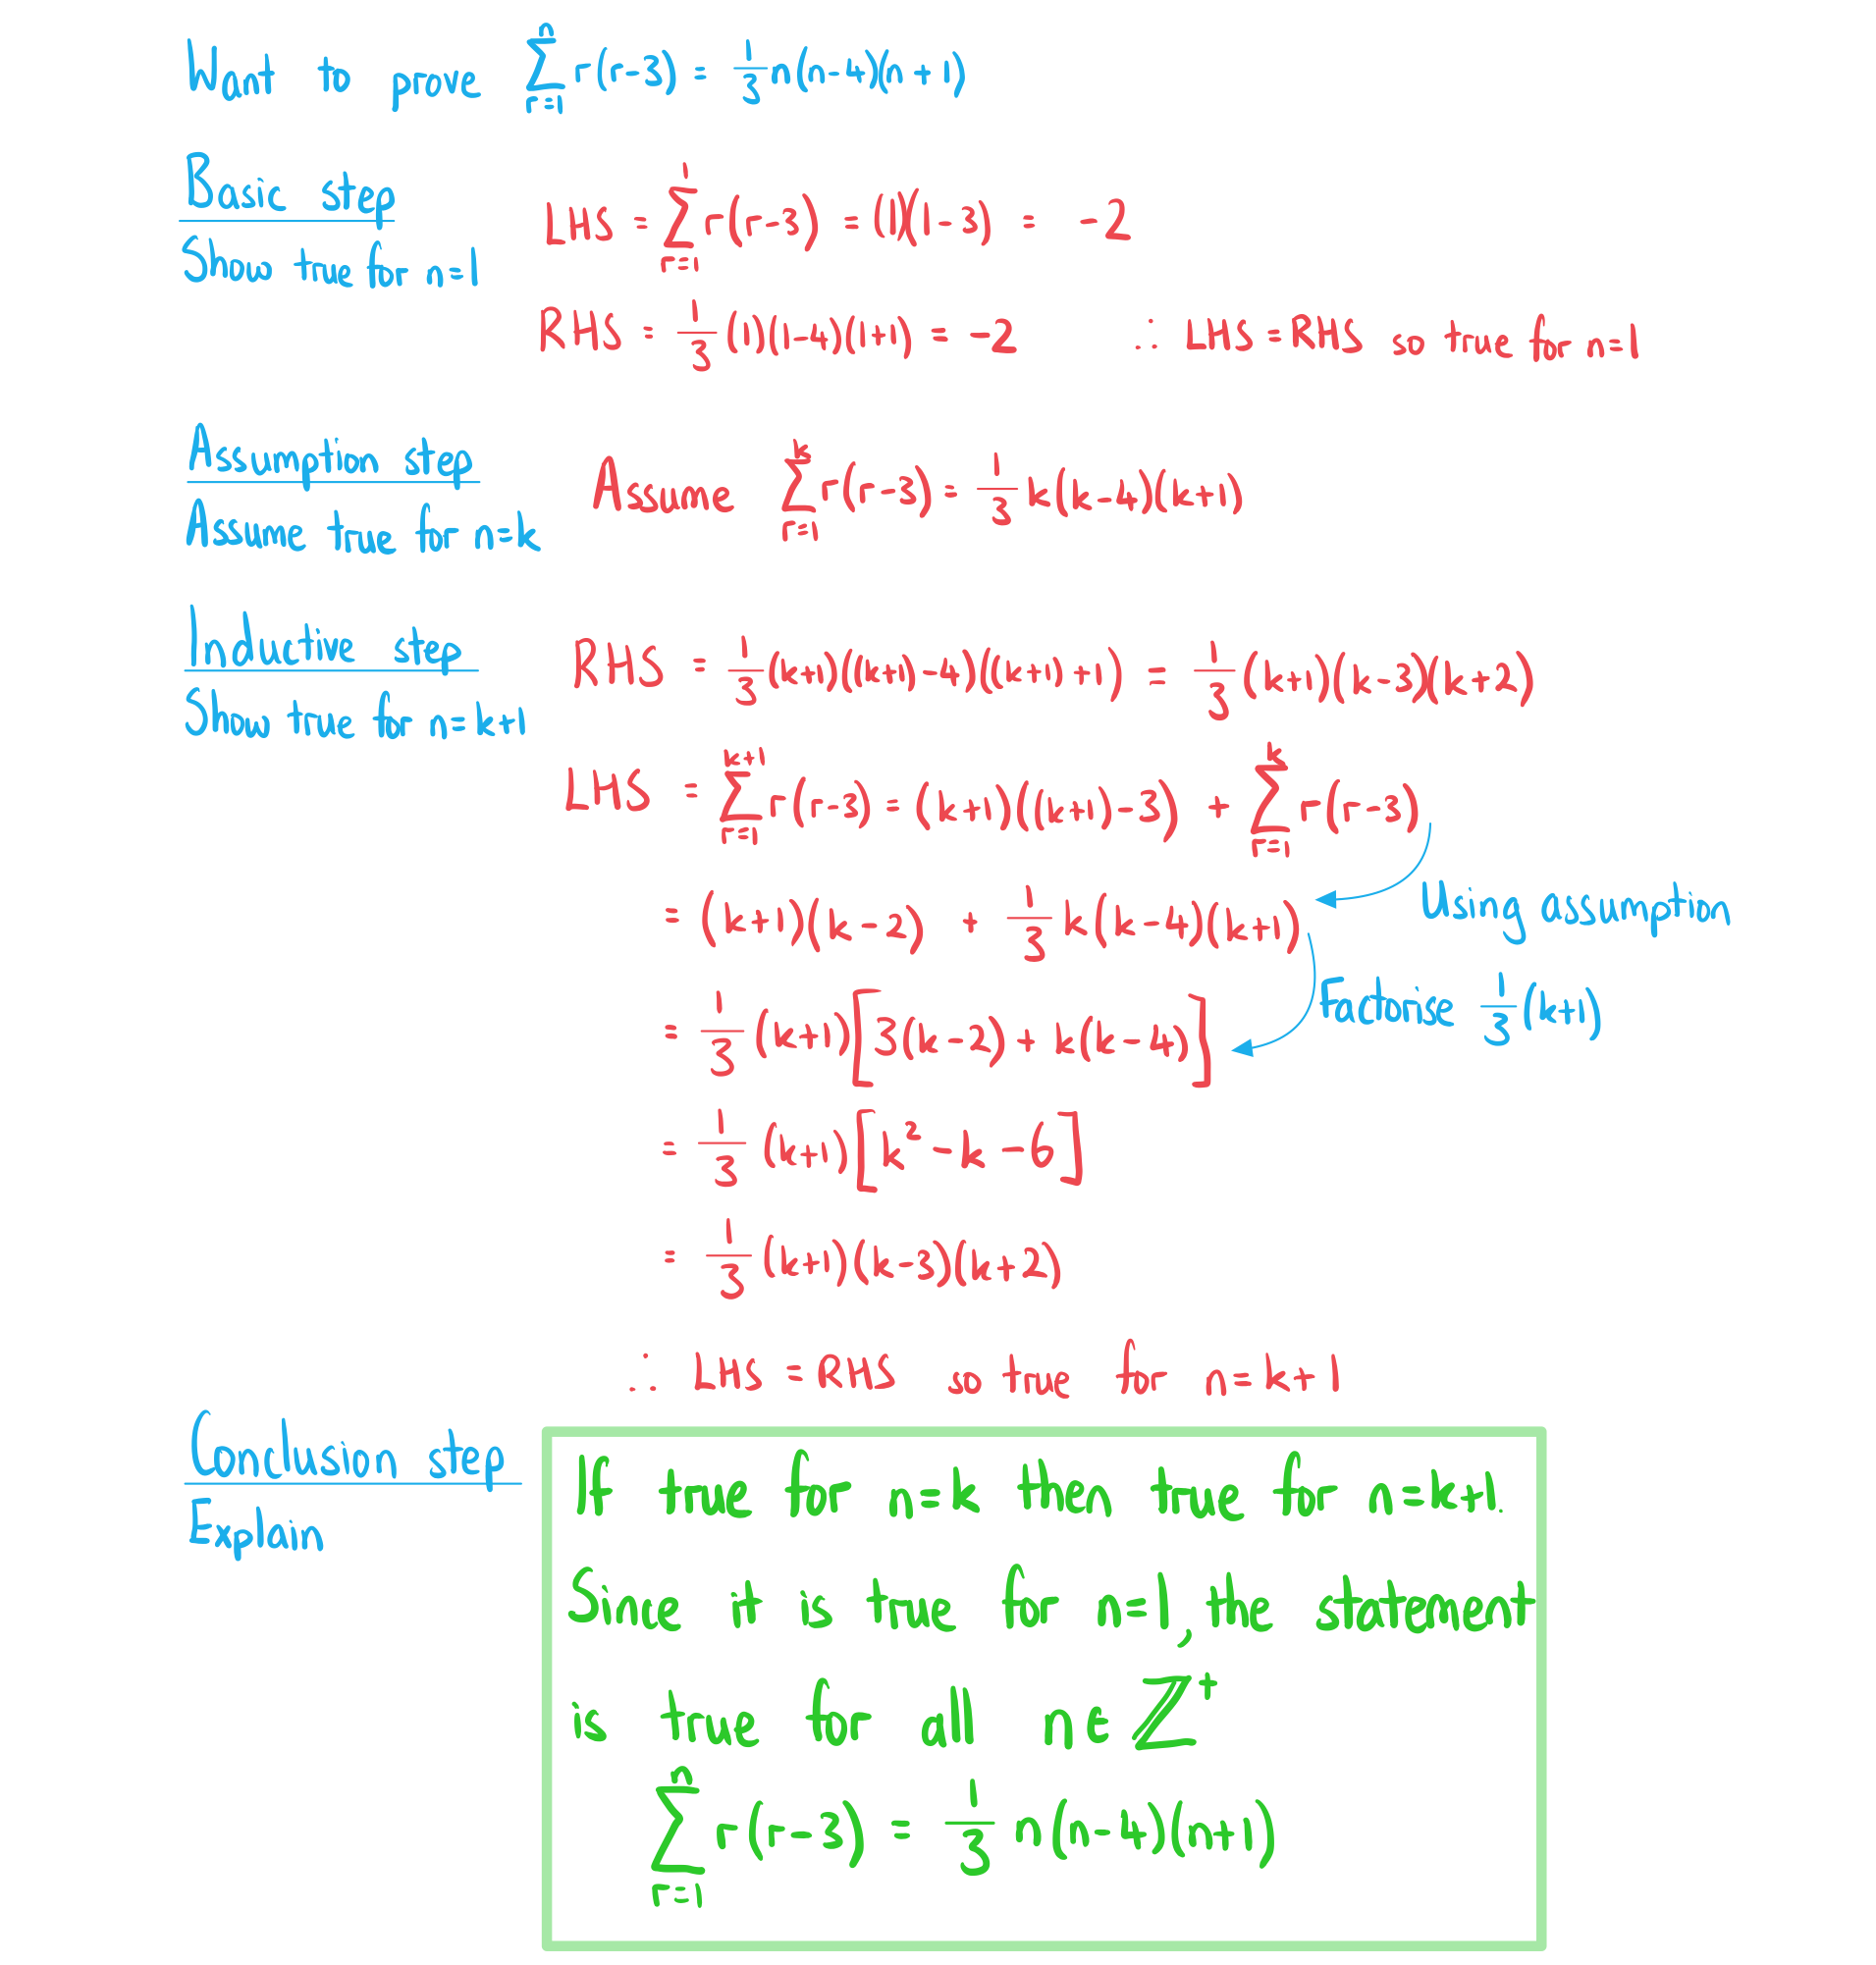 Want to prove \sum_{r=1}^{n} r(r-3) = \frac{1}{3}n(n-4)(n+1)
Basic step
Show true for n=1
LHS = \sum_{r=1}^{1} r(r-3) = (1)(1-3) = -2
RHS = \frac{1}{3}(1)(1-4)(1+1) = -2 ∴ LHS=RHS so true for n=1
Assumption step
Assume true for n=k
Assume \sum_{r=1}^{k} r(r-3) = \frac{1}{3}k(k-4)(k+1)
Inductive step
Show true for n=k+1
RHS = \frac{1}{3}(k+1)((k+1)-4)((k+1)+1) = \frac{1}{3}(k+1)(k-3)(k+2)
LHS = \sum_{r=1}^{k+1} r(r-3) = (k+1)((k+1)-3) + \sum_{r=1}^{k} r(r-3)
= (k+1)(k-2) + \frac{1}{3}k(k-4)(k+1)
Using assumption
= \frac{1}{3}(k+1)[3(k-2)+k(k-4)]
Factorise \frac{1}{3}(k+1)
= \frac{1}{3}(k+1)[k^2-k-6]
= \frac{1}{3}(k+1)(k-3)(k+2)
∴ LHS=RHS so true for n=k+1
Conclusion step
Explain
If true for n=k then true for n=k+1.
Since it is true for n=1, the statement
is true for all n∈ℤ⁺
\sum_{r=1}^{n} r(r-3) = \frac{1}{3}n(n-4)(n+1)